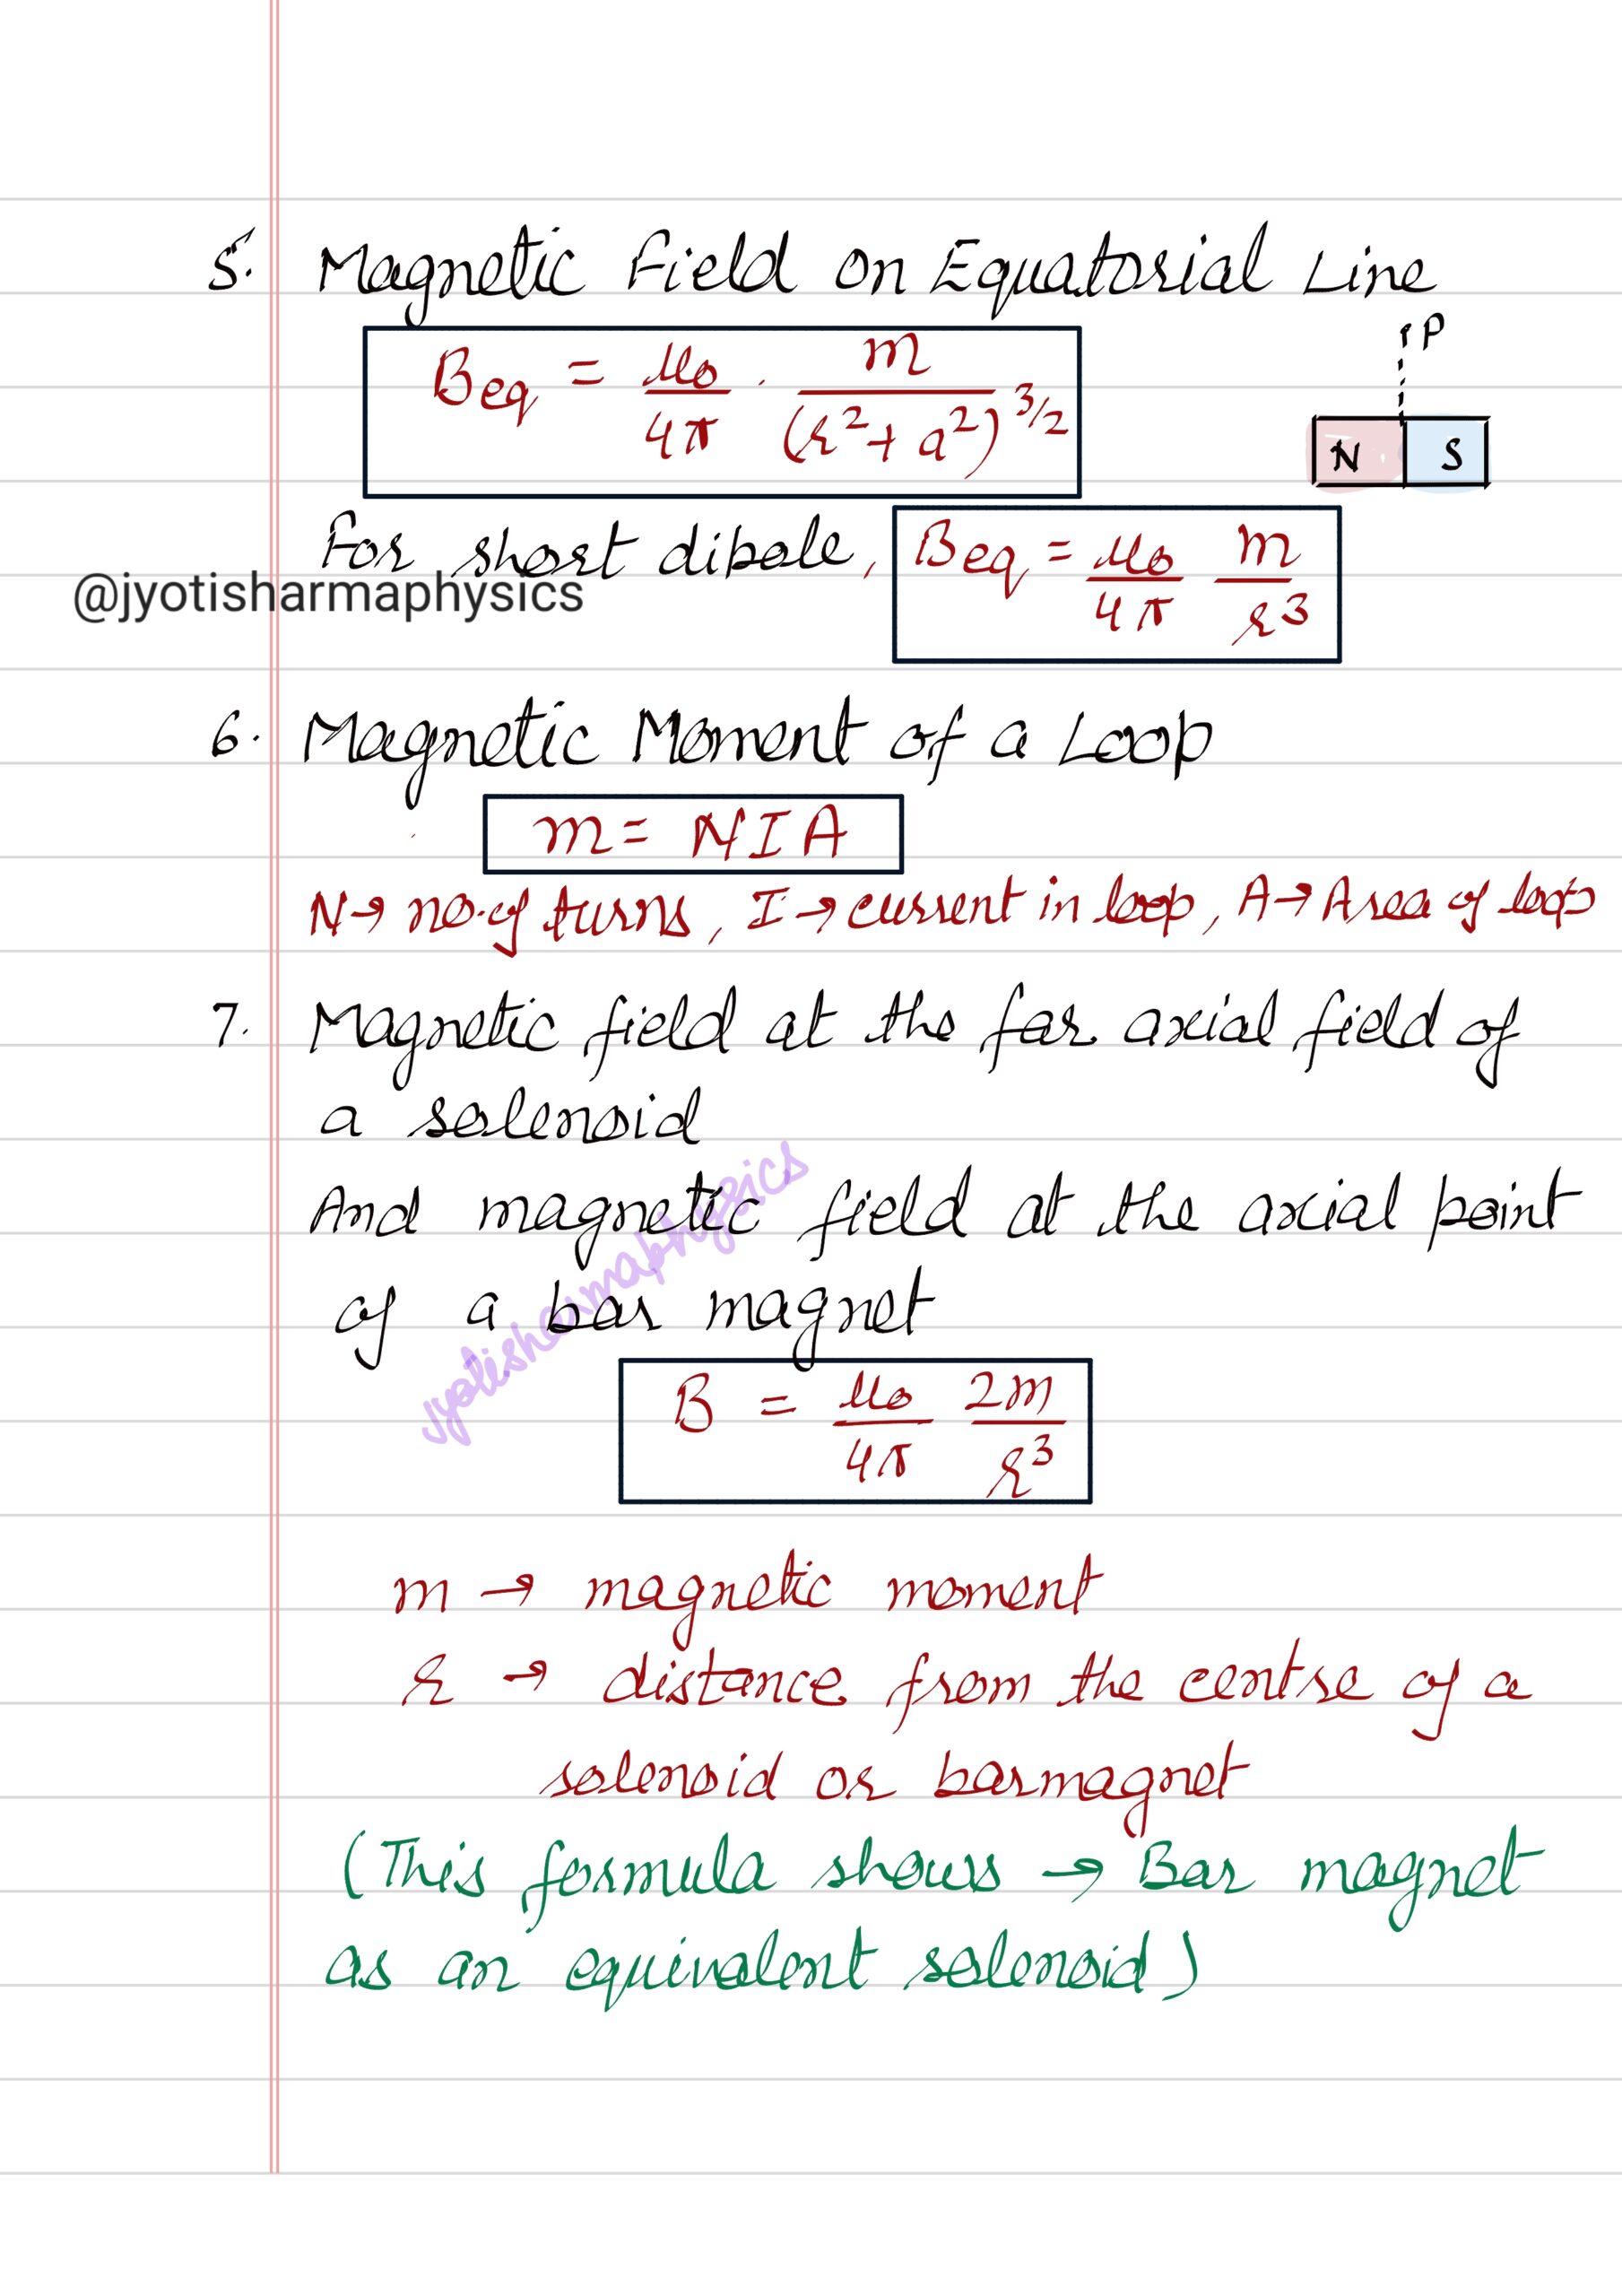 5. Magnetic Field on Equatorial Line
P
Beq = μ₀/4π · m/(r²+a²)^3/2
N S
For short dipole, Beq = μ₀/4π m/r³
@jyotisharmaphysics
6. Magnetic Moment of a Loop
m = NIA
N→ no. of turns, I→ current in loop, A→ Area of loop
7. Magnetic field at the far axial field of
a solenoid
And magnetic field at the axial point
of a bar magnet
jyotisharmaphysics
B = μ₀/4π 2m/r³
m → magnetic moment
r → distance from the centre of a
solenoid or barmagnet
(This formula shows → Bar magnet
as an equivalent solenoid)